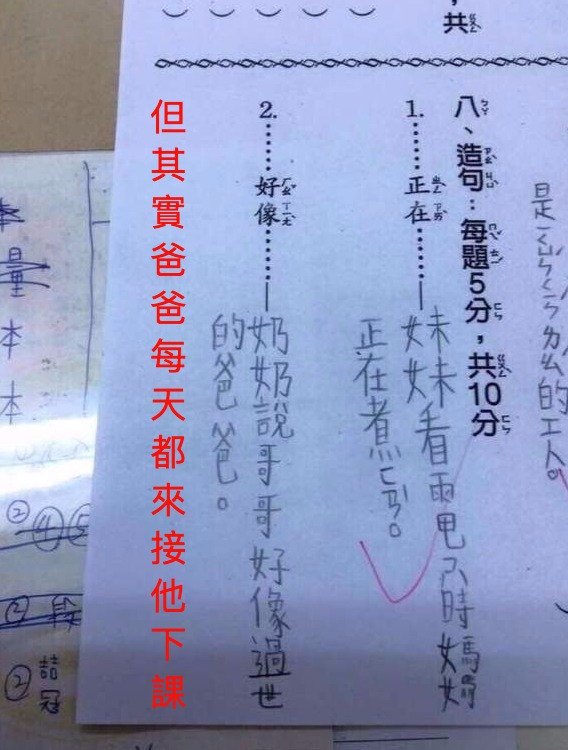 ，共
的工人。
八、造句：每題5分，共10分
1.……正在……—
妹妹看電ㄕˋ時媽媽
正在煮ㄈㄢˋ。
2.……好像……—
奶奶說哥哥好像過世
的爸爸。
但其實爸爸每天都來接他下課
量
本
本
②④⑤
②段
②